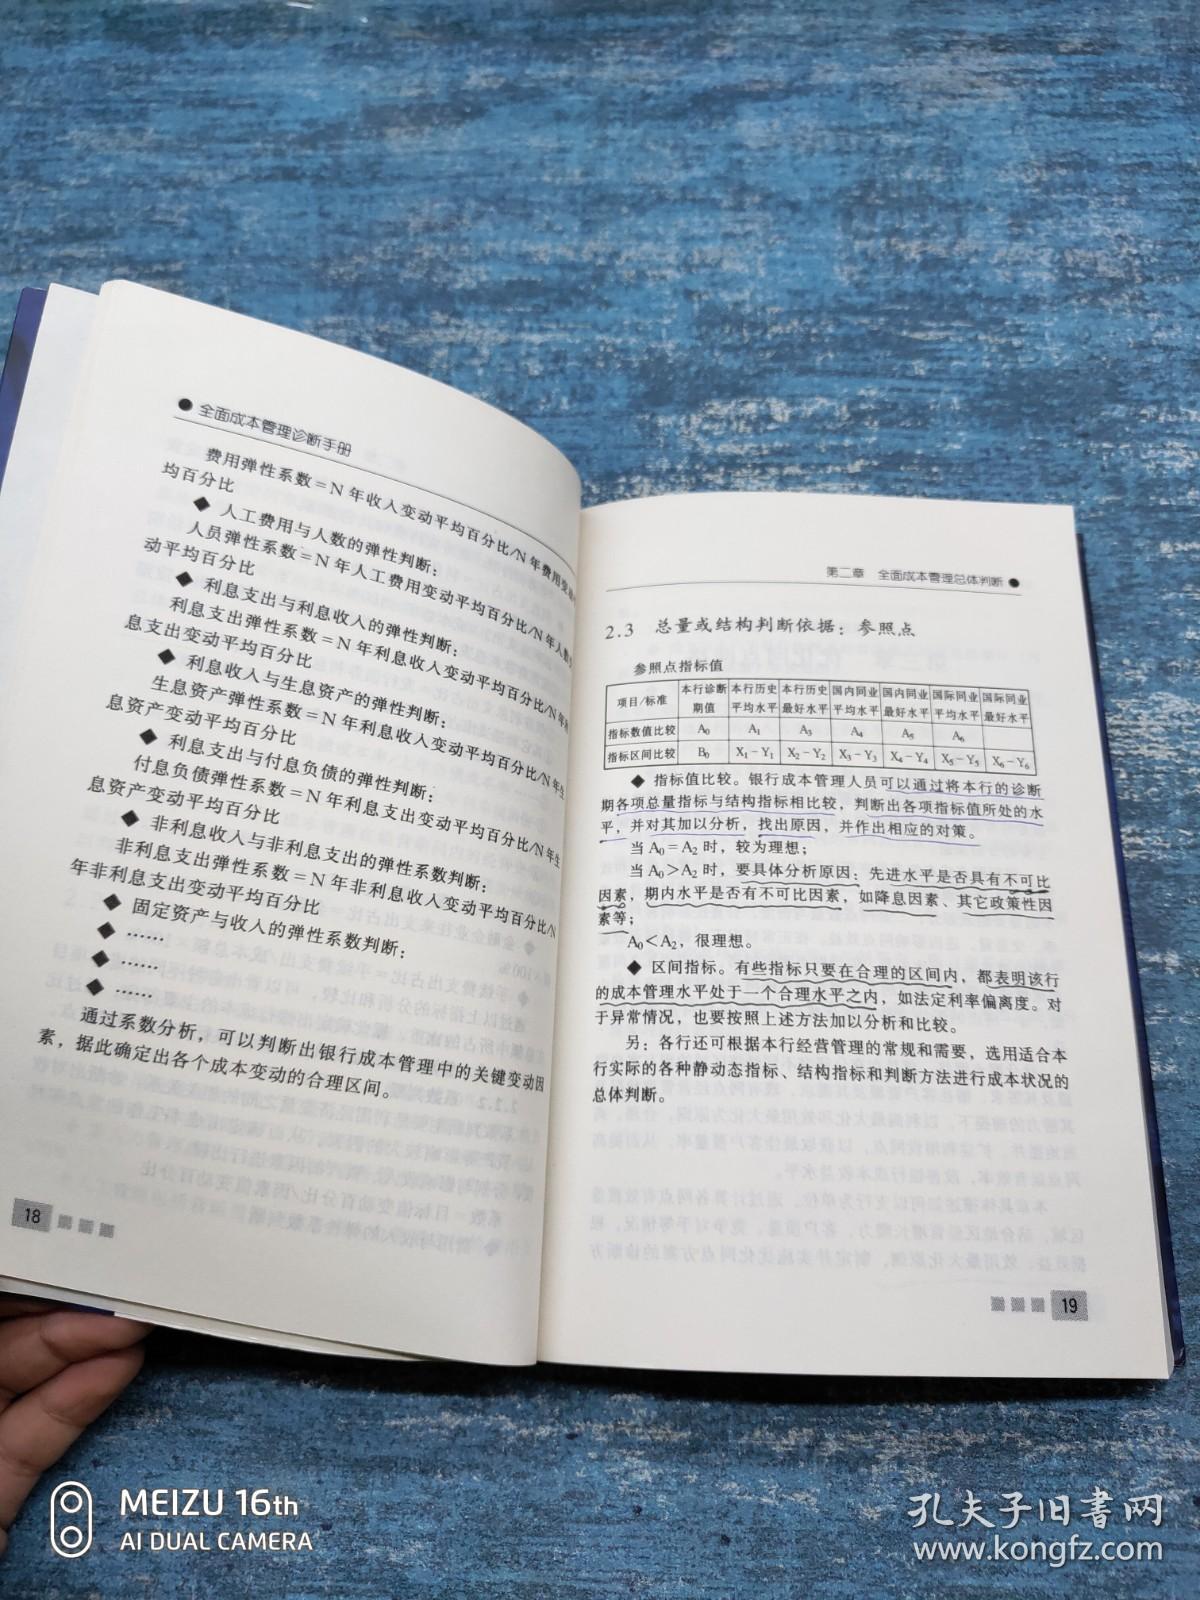 全面成本管理诊断手册
费用弹性系数=N年收入变动平均百分比/N年费用变动
均百分比
◆ 人工费用与人数的弹性判断：
人员弹性系数=N年人工费用变动平均百分比/N年人数
动平均百分比
◆ 利息支出与利息收入的弹性判断：
利息支出弹性系数=N年利息收入变动平均百分比/N年利
息支出变动平均百分比
◆ 利息收入与生息资产的弹性判断：
生息资产弹性系数=N年利息收入变动平均百分比/N年生
息资产变动平均百分比
◆ 利息支出与付息负债的弹性判断：
付息负债弹性系数=N年利息支出变动平均百分比/N年生
息资产变动平均百分比
◆ 非利息收入与非利息支出的弹性系数判断：
非利息支出弹性系数=N年非利息收入变动平均百分比/N
年非利息支出变动平均百分比
◆ 固定资产与收入的弹性系数判断：
◆ ……
◆ ……
◆ ……
通过系数分析，可以判断出银行成本管理中的关键变动因
素，据此确定出各个成本变动的合理区间。
18
第二章 全面成本管理总体判断
2.3 总量或结构判断依据：参照点
参照点指标值
项目/标准 本行诊断期值 本行历史平均水平 本行历史最好水平 国内同业平均水平 国内同业最好水平 国际同业平均水平 国际同业最好水平
指标数值比较 A0 A1 A3 A4 A5 A6
指标区间比较 B0 X1-Y1 X2-Y2 X3-Y3 X4-Y4 X5-Y5 X6-Y6
◆ 指标值比较。银行成本管理人员可以通过将本行的诊断
期各项总量指标与结构指标相比较，判断出各项指标值所处的水
平，并对其加以分析，找出原因，并作出相应的对策。
当 A0=A2 时，较为理想；
当 A0>A2 时，要具体分析原因：先进水平是否具有不可比
因素，期内水平是否有不可比因素，如降息因素、其它政策性因
素等；
A0<A2，很理想。
◆ 区间指标。有些指标只要在合理的区间内，都表明该行
的成本管理水平处于一个合理水平之内，如法定利率偏离度。对
于异常情况，也要按照上述方法加以分析和比较。
另：各行还可根据本行经营管理的常规和需要，选用适合本
行实际的各种静动态指标、结构指标和判断方法进行成本状况的
总体判断。
19
MEIZU 16th
AI DUAL CAMERA
孔夫子旧书网
www.kongfz.com